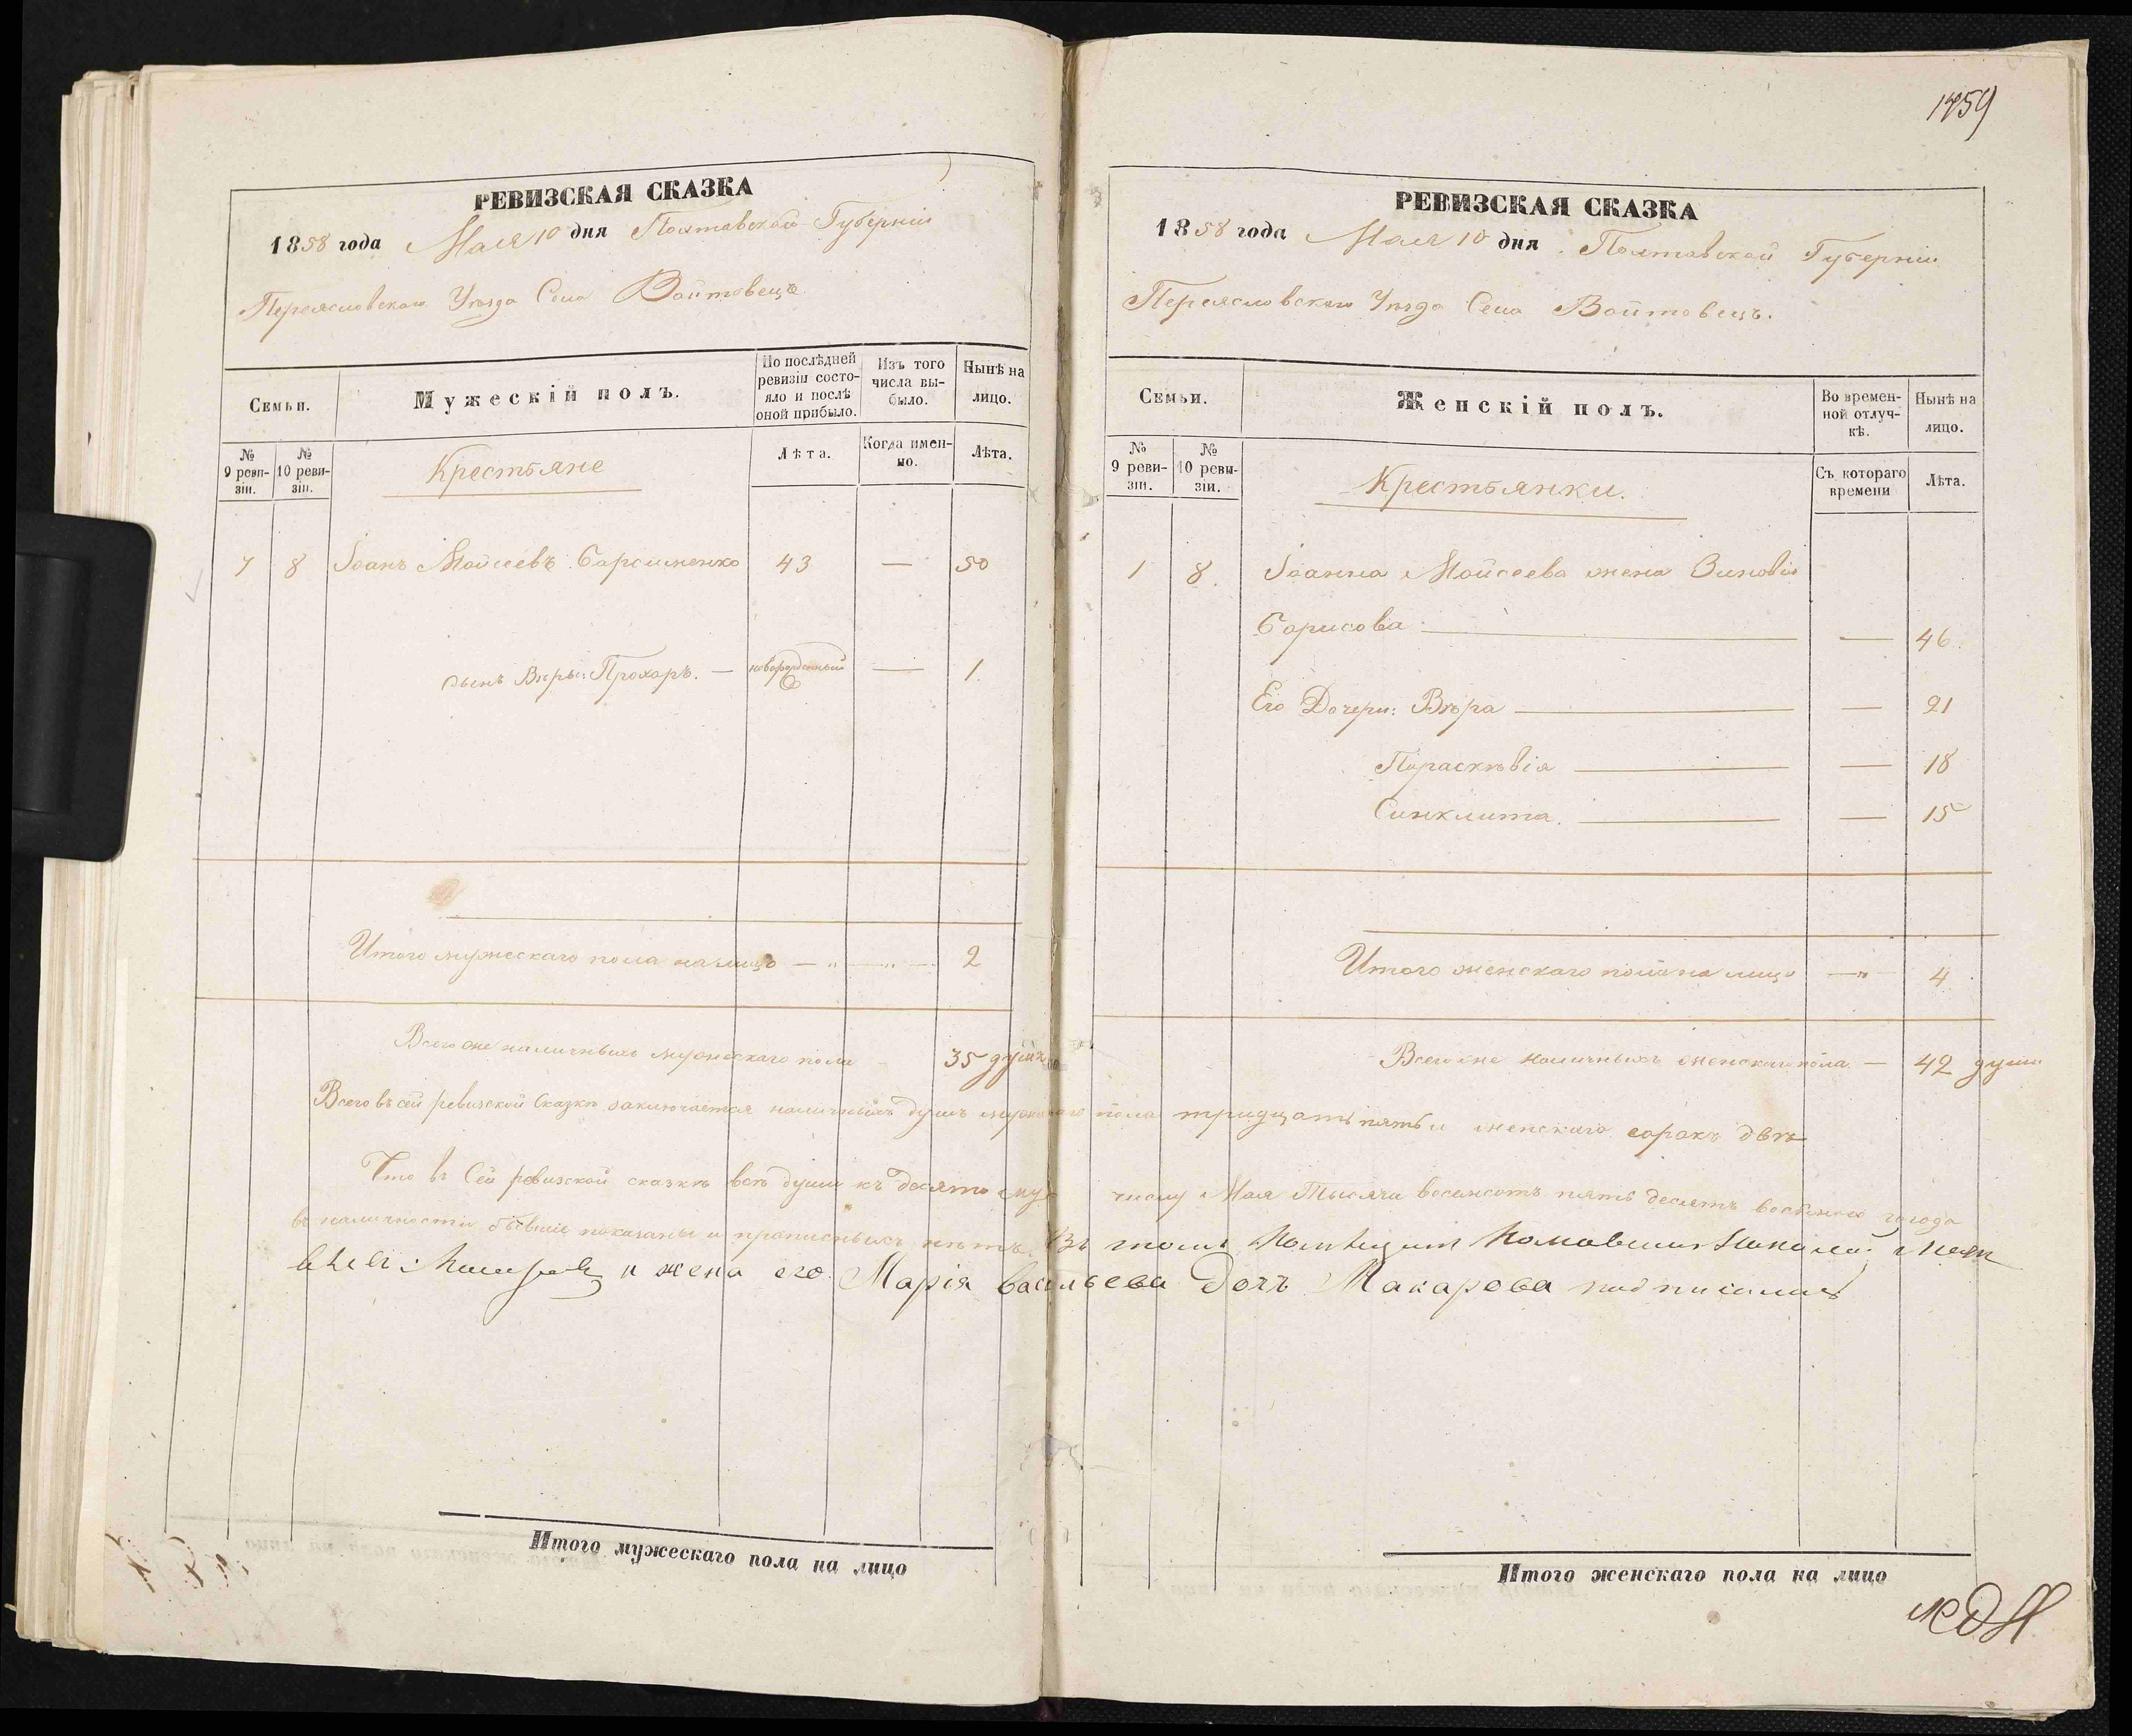 РЕВИЗСКАЯ СКАЗКА
1858 года Мая 10 дня Полтавской Губерніи
Переясловскаго Уѣзда Села Войтовецъ
Семьи.
Мужескій полъ.
По послѣдней ревизіи состояло и послѣ оной прибыло.
Изъ того числа выбыло.
Нынѣ на лицо.
№ 9 ревизіи.
№ 10 ревизіи.
Крестьяне
Лѣта.
Когда именно.
Лѣта.
7 8 Іоанъ Мойсеевъ 43 — 50
сынъ Вѣры: Прохоръ. — новорожденный — 1.
Итого мужескаго пола налицо — „ — „ — 2
Всего же наличныхъ мужескаго пола 35 душъ
1459
РЕВИЗСКАЯ СКАЗКА
1858 года Мая 10 дня Полтавской Губерніи
Переясловскаго Уѣзда Села Войтовецъ.
Семьи.
Женскій полъ.
Во временной отлучкѣ.
Нынѣ на лицо.
№ 9 ревизіи.
№ 10 ревизіи.
Крестьянки.
Съ котораго времени
Лѣта.
1 8. Іоанна Мойсеева жена Зиновія
Борисова — — 46.
Его Дочери: Вѣра — — 21
Параскѣвія — — 18
Синклита. — — 15
Итого женскаго пола на лицо — „ — 4
Всего же наличныхъ женскаго пола — 42 души
Всего въ сей ревизской Сказкѣ заключается наличныхъ душъ мужескаго пола тридцать пять и женскаго сорокъ двѣ
Что въ Сей ревизской сказкѣ всѣ души къ десятому числу Мая Тысяча восемсотъ пятьдесятъ восьмаго года
въ наличности бывшіе показаны и прописныхъ нѣтъ. Въ томъ
и жена его Марія Васильева Дочъ Макарова подписались
Итого мужескаго пола на лицо
Итого женскаго пола на лицо